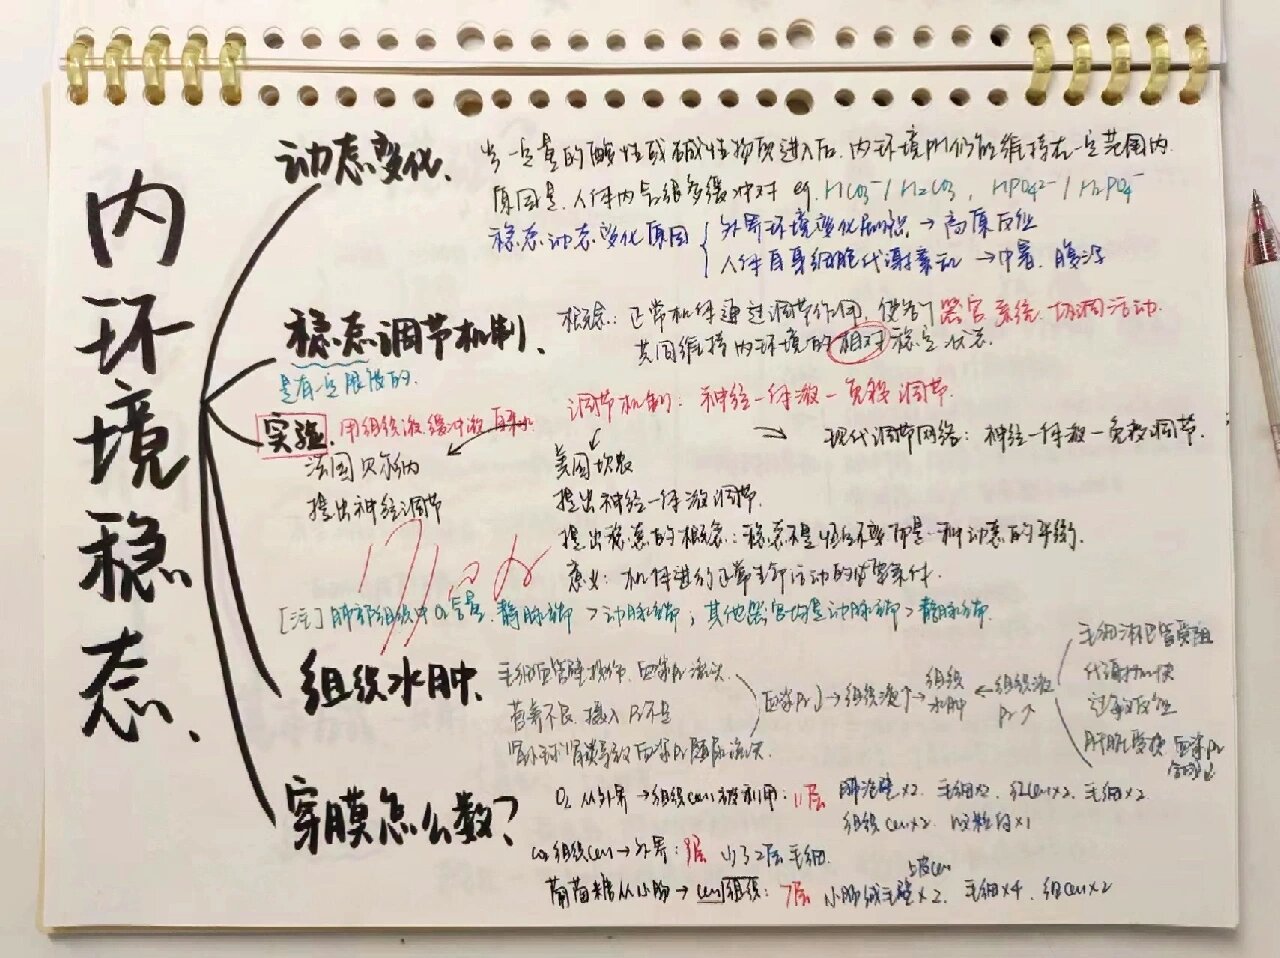 内环境稳态、
动态变化、
当一定量的酸性或碱性物质进入后,内环境仍能维持在一定范围内.
原因是,人体内含很多缓冲对 eg. HCO₃⁻/H₂CO₃, HPO₄²⁻/H₂PO₄⁻
稳态动态变化原因
外界环境变化 → 高原反应
人体自身细胞代谢紊乱 → 中暑、腹泻
稳态调节机制、
是有一定限度的.
概念: 正常机体通过调节作用, 使各个器官系统协调活动.
共同维持内环境的相对稳定状态.
调节机制: 神经一体液一免疫调节.
实验、用组织液、缓冲液、自来水
法国贝尔纳
提出神经调节
美国坎农
提出神经一体液调节.
提出稳态的概念: 稳态不是恒定不变而是一种动态的平衡.
意义: 机体进行正常生命活动的必要条件.
现代调节网络: 神经一体液一免疫调节.
[注] 肺部组织中O₂含量, 静脉端 > 动脉端; 其他器官均是动脉端 > 静脉端.
组织水肿、
毛细血管壁损伤, 血浆Pr流失.
营养不良、摄入Pr不足
肾小球肾炎导致血浆Pr随尿流失.
血浆Pr↓→组织液↑→组织水肿 ← 组织液Pr↑
毛细淋巴管受阻
代谢加快
过敏反应
肝脏受损, 血浆Pr
穿膜怎么数?
O₂从外界→组织cell被利用: 11层 肺泡壁×2. 毛细×2, 红cell×2. 毛细×2
组织cell×2. 线粒体×1
CO₂组织cell→外界: 9层 少了2层毛细.
葡萄糖从小肠→cell组织: 7层 小肠绒毛壁×2、毛细×4、组cell×2
上皮cell